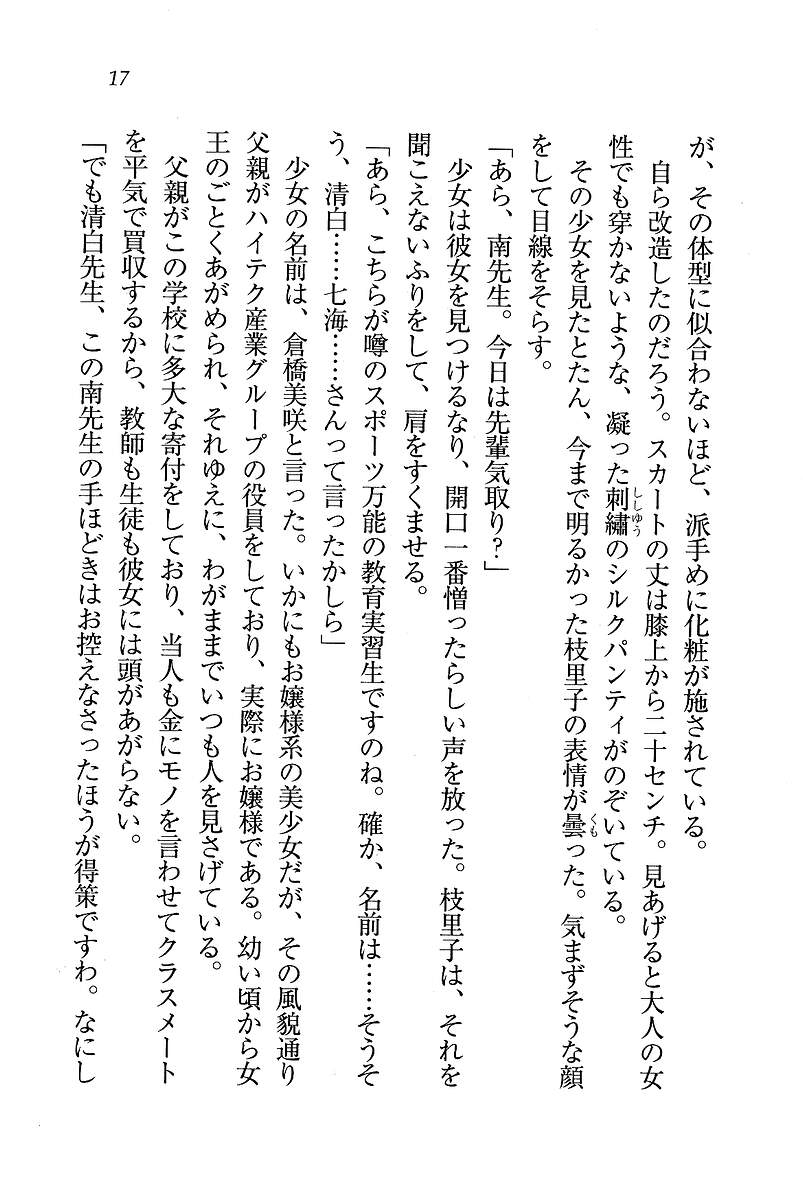 17
が、その体型に似合わないほど、派手めに化粧が施されている。
その少女を見たとたん、今まで明るかった枝里子の表情が曇った。気まずそうな顔
をして目線をそらす。
「あら、南先生。今日は先輩気取り?」
少女は彼女を見つけるなり、開口一番憎ったらしい声を放った。枝里子は、それを
聞こえないふりをして、肩をすくませる。
「あら、こちらが噂のスポーツ万能の教育実習生ですのね。確か、名前は……そうそ
う、清白……七海……さんって言ったかしら」
少女の名前は、倉橋美咲と言った。いかにもお嬢様系の美少女だが、その風貌通り
父親がハイテク産業グループの役員をしており、実際にお嬢様である。幼い頃から女
王のごとくあがめられ、それゆえに、わがままでいつも人を見さげている。
父親がこの学校に多大な寄付をしており、当人も金にモノを言わせてクラスメート
を平気で買収するから、教師も生徒も彼女には頭があがらない。
「でも清白先生、この南先生の手ほどきはお控えなさったほうが得策ですわ。なにし